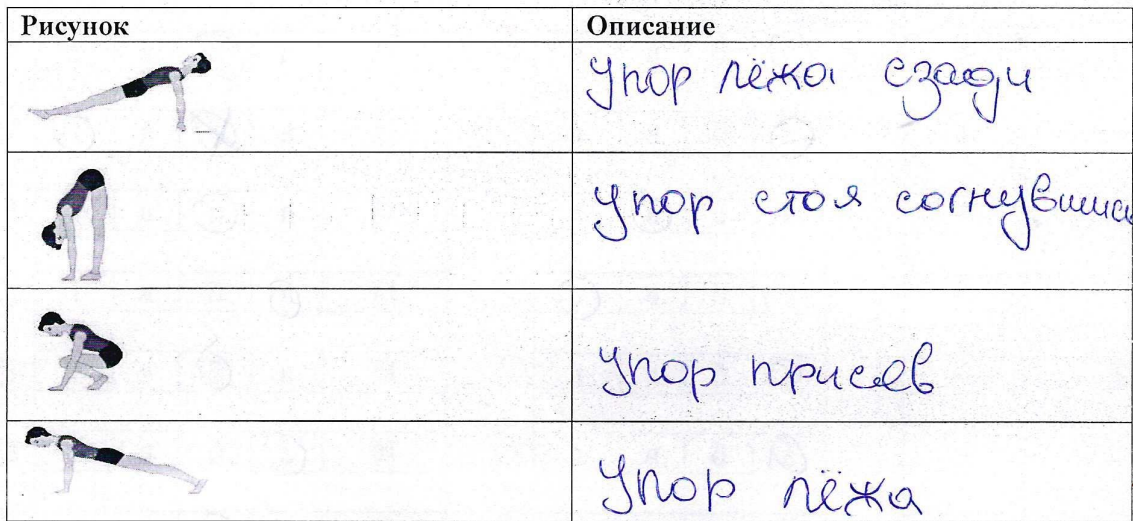 Рисунок
Описание
Упор лёжа сзади
Упор стоя согнувшись
Упор присев
Упор лёжа